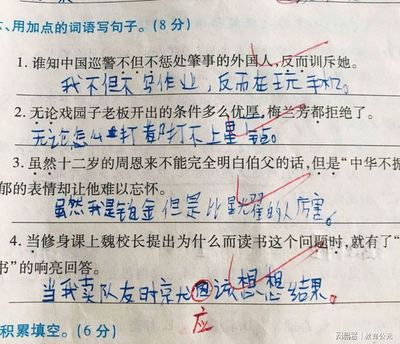 、用加点的词语写句子。(8 分)
1. 谁知中国巡警不但不惩处肇事的外国人,反而训斥她。
我不但不写作业,反而在玩手机。
2. 无论戏园子老板开出的条件多么优厚,梅兰芳都拒绝了。
无论怎么打都打不上星
3. 虽然十二岁的周恩来不能完全明白伯父的话,但是“中华不振
郁的表情却让他难以忘怀。
虽然我是铂金但是比星耀的人厉害。
4. 当修身课上魏校长提出为什么而读书这个问题时,就有了“
书”的响亮回答。
当我卖队友时京尤因该想想结果。
应
积累填空。(6 分)
网易号 | 教育公元